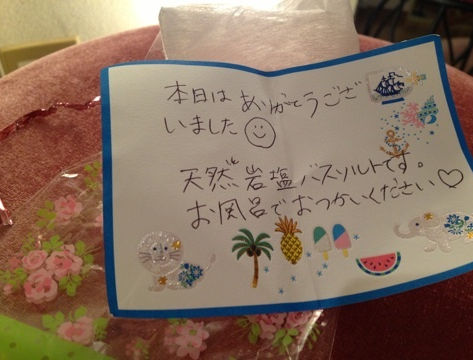 本日はありがとうござ
いました
天然岩塩バスソルトです。
お風呂でおつかいください♡